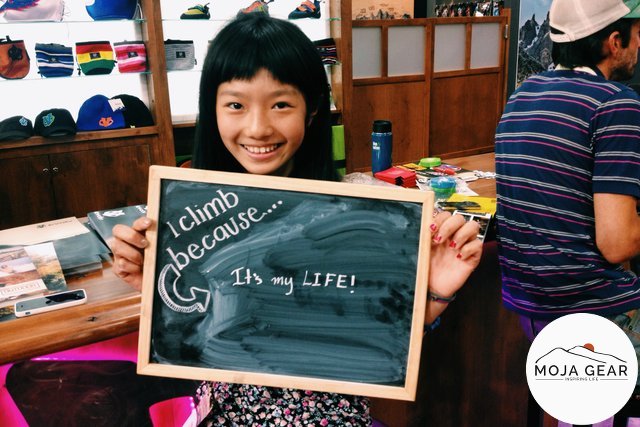 I climb
because...
It's my LIFE!
MOJA GEAR
INSPIRING LIFE